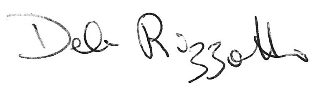 Dele Rizzotto